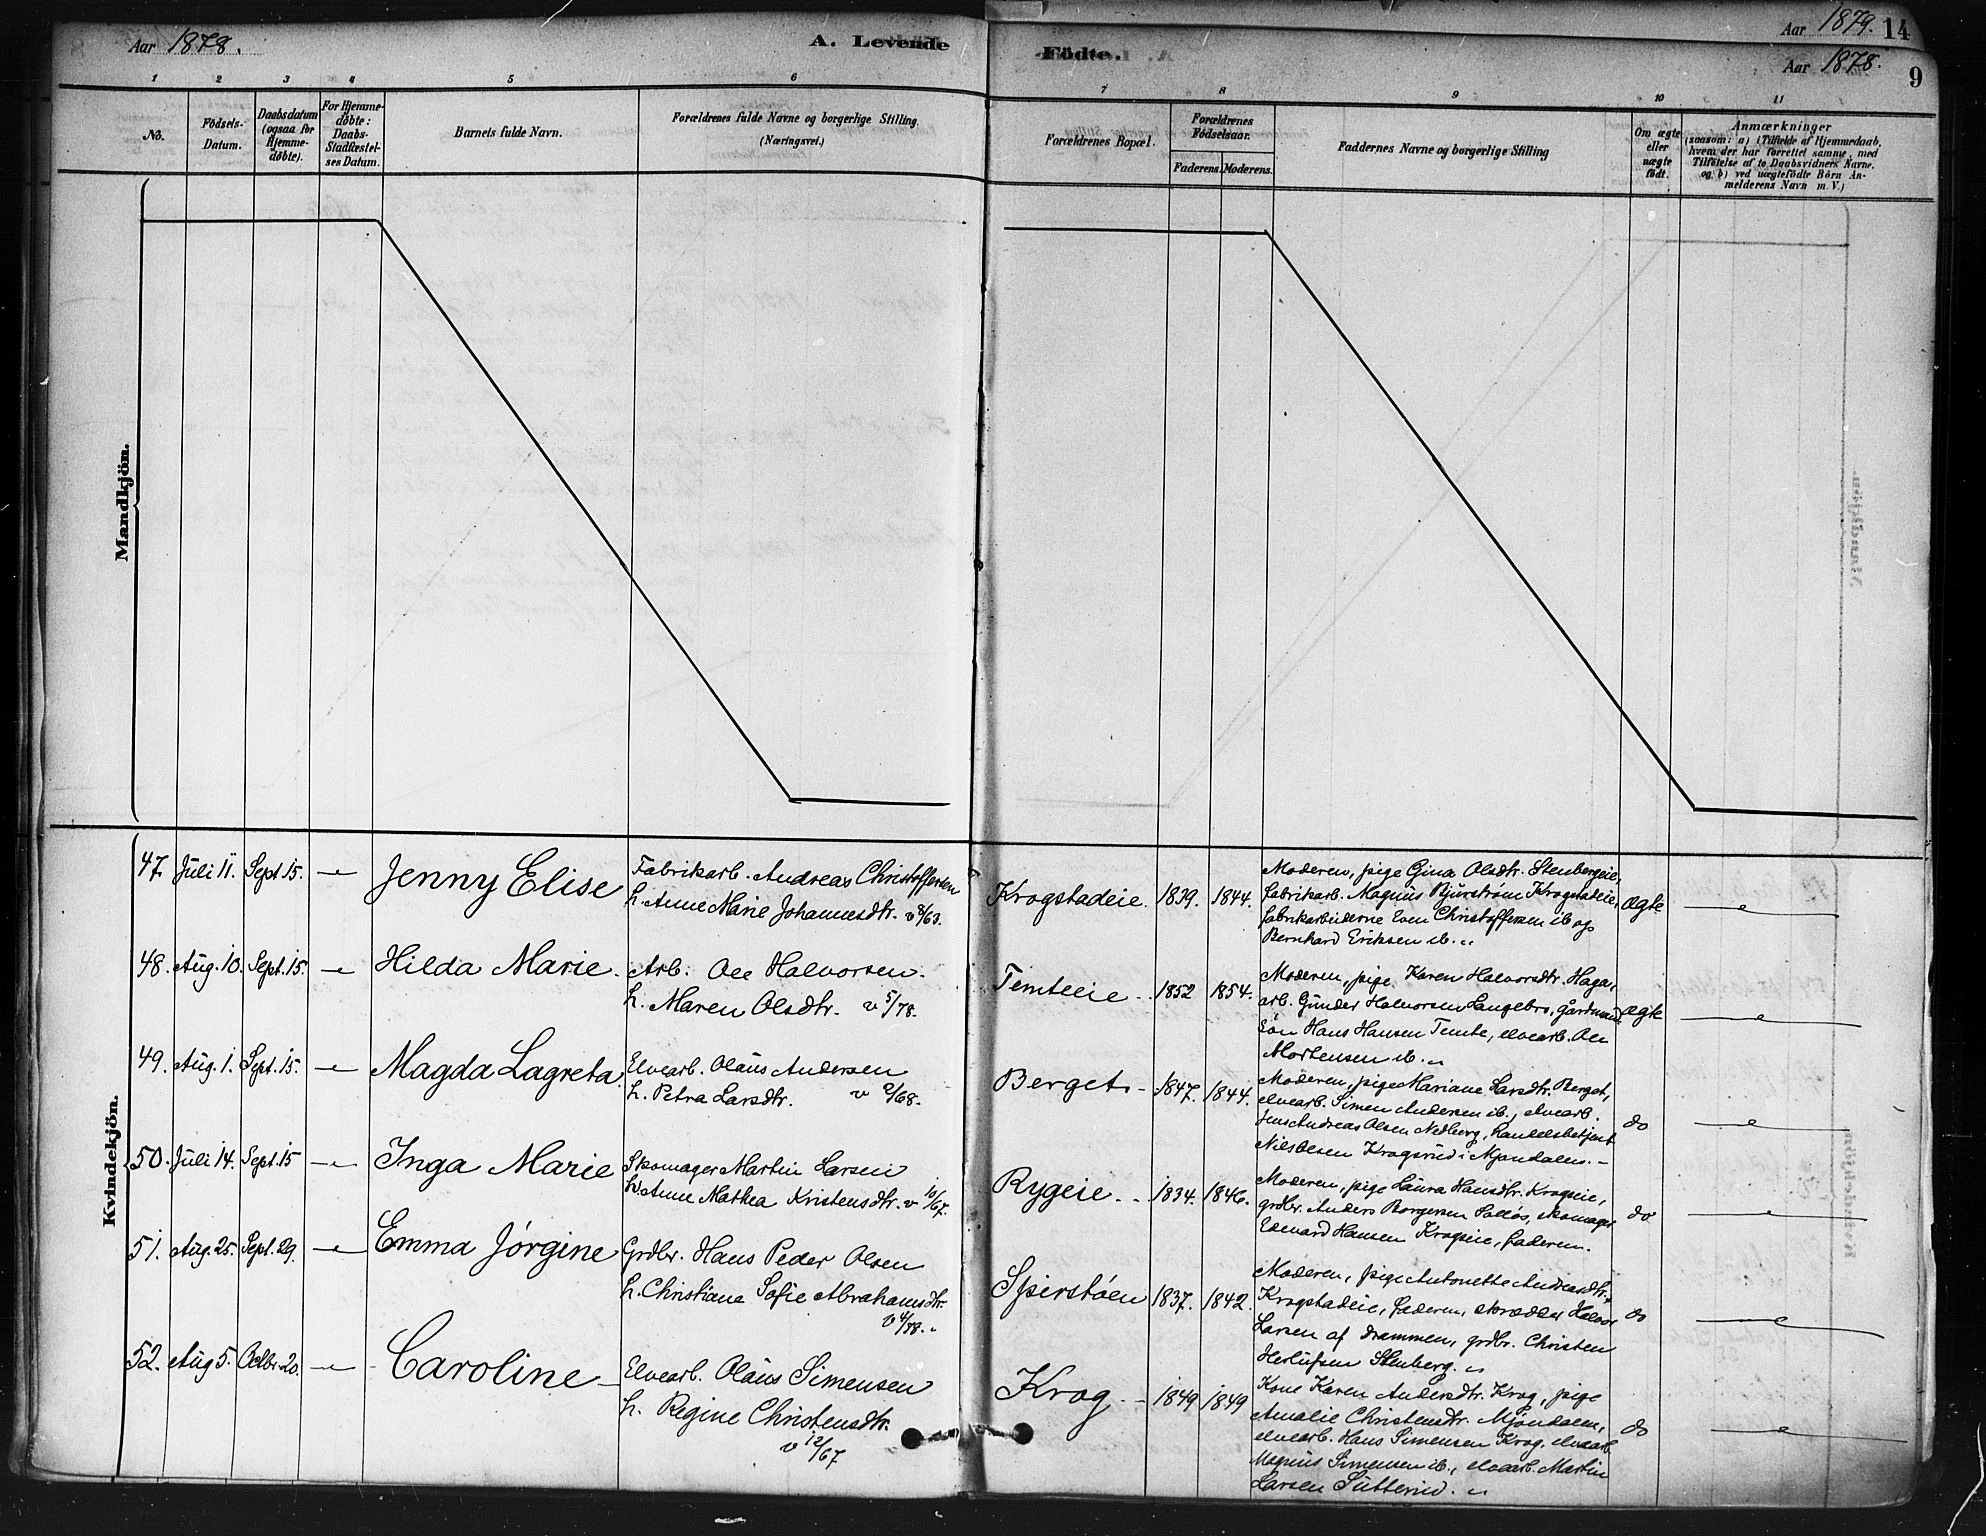 Aar 1878.
A. Levende
Födte.
Aar 1879. 14
Aar 1878. 9
1 2 3 4 5 6 7 8 9 10 11
No.
Födsels-Datum.
Daabsdatum (ogsaa for Hjemmedøbte).
For Hjemmedøbte: Daabs-Stadfæstelses Datum.
Barnets fulde Navn.
Forældrenes fulde Navne og borgerlige Stilling.
(Næringsvei.)
Forældrenes Bopæl.
Forældrenes Födselsaar.
Faderens. Moderens.
Faddernes Navne og borgerlige Stilling
Om ægte eller uægte født.
Anmærkninger
(saasom: a) i Tilfælde af Hjemmedaab,
hvem der har forrettet samme, med
Tilföielse af to Daabsvidners Navne.
og b) ved uægtefödte Börn An-
melderens Navn m. V.)
Mandkjön.
Kvindekjön.
47. Juli 11. Sept 15. Jenny Elise
Fabrikarb. Andreas Christoffersen
h. Anne Marie Johannesdtr. v 8/63.
Krogstadeie. 1839. 1844.
Moderen, pige Gina Olsdtr. Stenbergeie,
fabrikarb. Magnus Bjurstrøm Krogstadeie,
fabrikarbeiderne Even Christoffersen ib og
Bernhard Eriksen ib.
Ægte
48. Aug. 10. Sept. 15. Hilda Marie.
Arb. Ole Halvorsen.
h. Maren Olsdtr. v 5/78.
Temteeie 1852 1854.
Moderen, pige Karen Halvorsdtr. Haga,
arb. Gunder Halvorsen Langebro, gårdmand
søn Hans Hansen Temte, elvearb. Ole
Mortensen ib.
Ægte
49. Aug. 1. Sept. 15. Magda Lagreta.
Elvearb. Olaus Andersen
h. Petra Larsdtr. v 2/68.
Berget 1847. 1844.
Moderen, pige Mariane Larsdtr. Berget,
elvearb. Simen Andersen ib., elvearb.
Jens Andreas Olsen Nedberg, handelsbetjent
Nils Olsen Krogsrud i Mjøndalen.
do
50. Juli 14. Sept. 15 Inga Marie
Skomager Martin Larsen
h. Anne Mathea Kristensdtr. v 10/67.
Rygeie 1834. 1846.
Moderen, pige Laura Hansdtr. Krogseie,
grdbr. Anders Borgersen Solløs, skomager
Edevard Hansen Krogseie, faderen.
do
51. Aug. 25. Sept. 29. Emma Jørgine
Grdbr. Hans Peder Olsen
h. Christiane Sofie Abrahamsdtr.
Spierstøen 1837. 1842.
Moderen, pige Antonette Andreasdtr.
Krogstadeie, faderen, skrædder Halvor
Larsen af Drammen, grdbr. Christen
Herlufsen Stenberg.
do
52. Aug 5. Octbr. 20. Caroline
Elvearb. Olaus Simensen
h. Regine Christensdtr.
v 12/67
Krog 1849 1849
Kone Karen Andersdtr. Krog, pige
Amalie Christensdtr. Mjøndalen,
elvearb. Hans Simensen Krog, elvearb.
Magnus Simensen ib., elvearb. Martin
Larsen Sutterud.
do